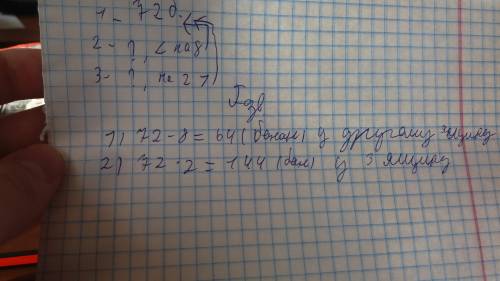 1 - 72 б.
2 - ?, < на 8
3 - ?, на 2 >
1) 72 - 8 = 64 (банан) у другому ящику
2) 72 · 2 = 144 (бан) у 3 ящику